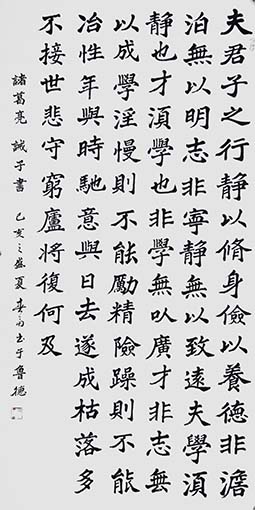 夫君子之行靜以脩身儉以養德非澹
泊無以明志非寧靜無以致遠夫學須
靜也才須學也非學無以廣才非志無
以成學淫慢則不能勵精險躁則不能
冶性年與時馳意與日去遂成枯落多
不接世悲守窮廬將復何及
諸葛亮 誡子書 乙亥之盛夏 书于魯德